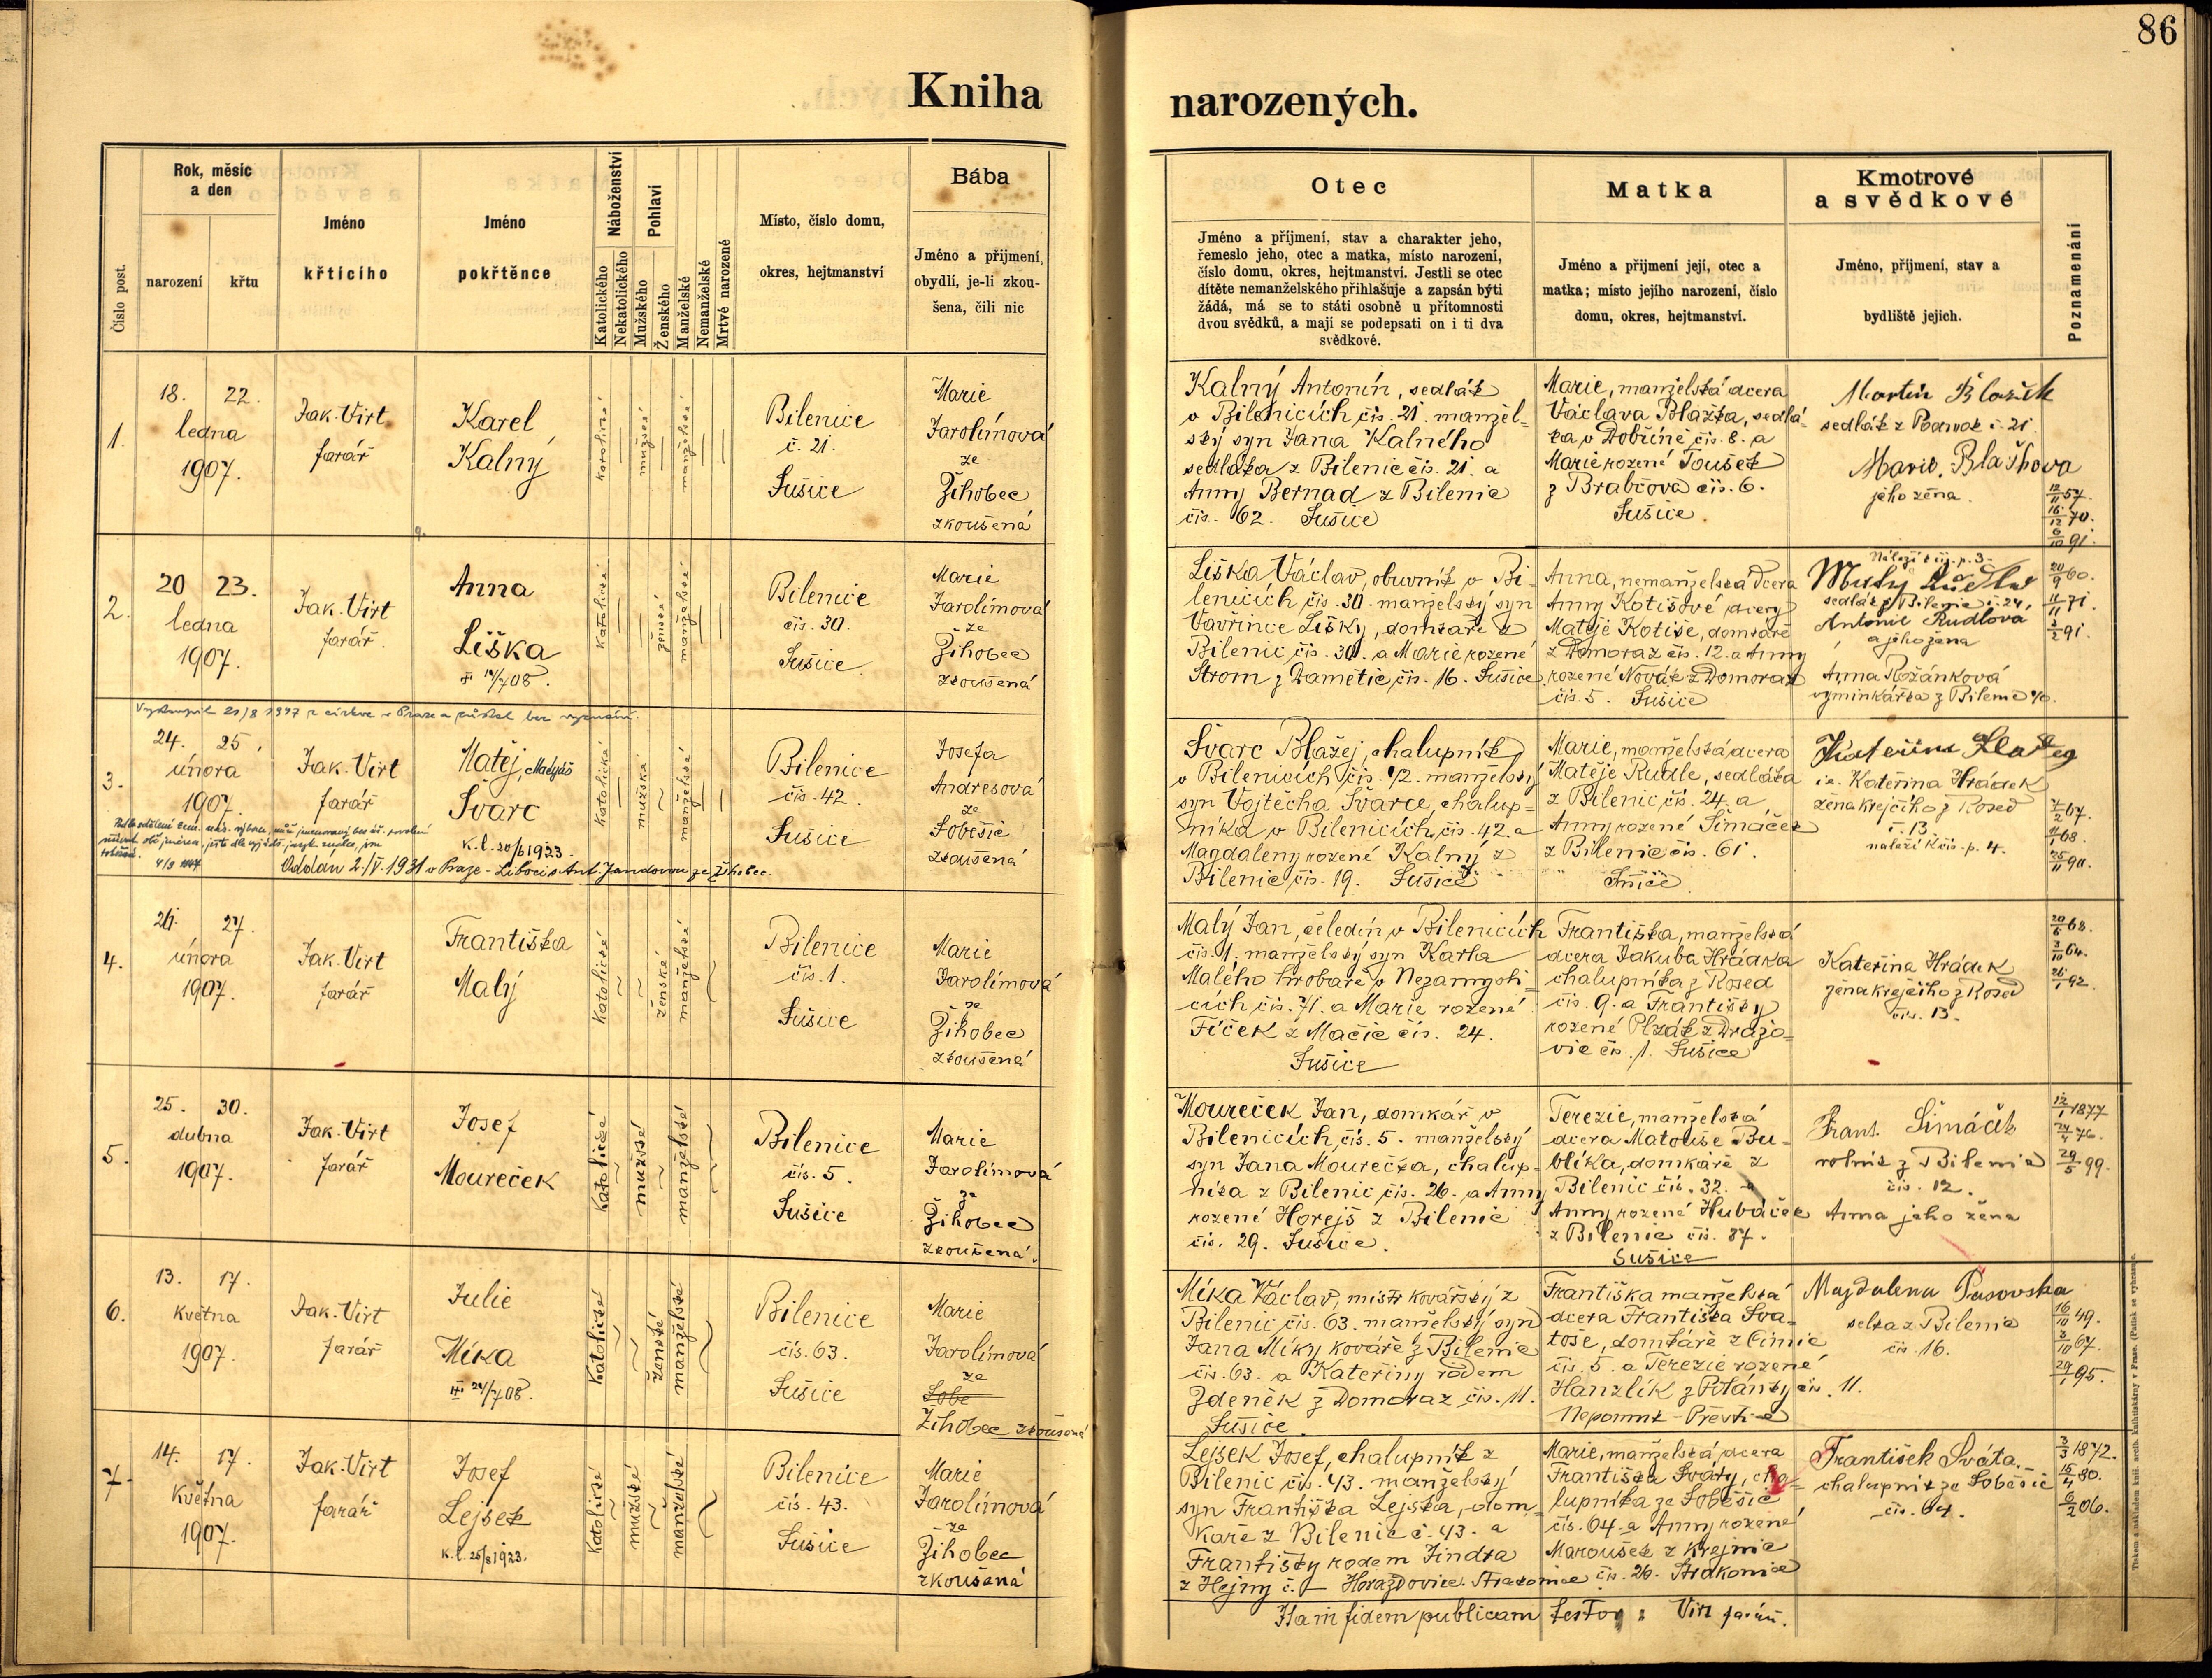 86
Kniha narozených.
Číslo post.
Rok, měsíc a den
narození
křtu
Jméno
křtícího
Jméno
pokřtěnce
Náboženství
Katolického
Nekatolického
Pohlaví
Mužského
Ženského
Manželské
Nemanželské
Mrtvě narozené
Místo, číslo domu,
okres, hejtmanství
Bába
Jméno a příjmení,
obydlí, je-li zkou-
šena, čili nic
Otec
Jméno a příjmení, stav a charakter jeho,
řemeslo jeho, otec a matka, místo narození,
číslo domu, okres, hejtmanství. Jestli se otec
dítěte nemanželského přihlašuje a zapsán býti
žádá, má se to státi osobně u přítomnosti
dvou svědků, a mají se podepsati on i ti dva
svědkové.
Matka
Jméno a příjmení její, otec a
matka; místo jejího narození, číslo
domu, okres, hejtmanství.
Kmotrové
a svědkové
Jméno, příjmení, stav a
bydliště jejich.
Poznamenání
1.
18. 22.
ledna
1907.
Jak. Virt
farář
Karel
Kalný
katolické
mužské
manželské
Bilenice
č. 21.
Sušice
Marie
Jarolímová
ze
Žihobec
zkoušená
Kalný Antonín, sedlák
v Bilenicích čís. 21. manžel-
ský syn Jana Kalného
sedláka z Bilenic čís. 21. a
Anny Bernad z Bilenic
čís. 62. Sušice
Marie, manželská dcera
Václava Blažka, sedlá-
ka v Dobříně čís. 8. a
Marie rozené Toušek
z Brabčova čís. 6.
Sušice
Martin Blažek
sedlák z č. 21.
Marie Blažkova
jeho žena.
12/11 57.
16/12 70.
6/10 91.
2.
20 23.
ledna
1907.
Jak. Virt
farář.
Anna
Liška
II 14/7 08.
katolické
ženské
manželské
Bilenice
čís. 30.
Sušice
Marie
Jarolímová
ze
Žihobec
zkoušená
Liška Václav, obuvník v Bi-
lenicích čís. 30. manželský syn
Vavřince Lišky, domkaře z
Bilenic čís. 30. a Marie rozené
Strom z Damětic čís. 16. Sušice.
Anna, nemanželská dcera
Anny Kotišové, dcery
Matěje Kotiše, domkáře
z Domoraz čís. 12. a Anny
rozené Novák z Domoraz
čís. 5. Sušice
Náleží k čís. p. 3.
sedlák z Bilenic č. 24,
Antonie Rudlová
a jeho žena
Anna Rožánková
vyminkářka z Bilenic
20/9 60.
11/11 71.
2/2 91.
Vystoupil 21/8 1947 z církve v Praze a zůstal bez vyznání.
3.
24. 25.
února
1907.
Jak. Virt
farář
Matěj, Matyáš
Švarc
k. l. 20/6 1923.
katolické
mužské
manželské
Bilenice
čís. 42.
Sušice
Josefa
Andresová
ze
Soběšic
zkoušená
Oddán 2./V. 1931 v Praze - Liboci s Ant. Jandovou ze Žihobec.
Švarc Blažej, chalupník
v Bilenicích čís. 42. manželský
syn Vojtěcha Švarce, chalup-
níka v Bilenicích čís. 42. a
Magdaleny rozené Kalný z
Bilenic čís. 19. Sušice
Marie, manželská dcera
Matěje Rudle, sedláka
z Bilenic čís. 24. a
Anny rozené Šimáček
z Bilenic čís. 61.
Sušice
i.e. Kateřina Hrádek
žena krejčího z Rosed
č. 13.
naleží k čís. p. 4.
7/2 67.
4/1 68.
25/11 90.
4.
26. 27.
února
1907.
Jak. Virt
farář
Františka
Malý
katolické
ženské
manželské
Bilenice
čís. 1.
Sušice
Marie
Jarolímová
ze
Žihobec
zkoušená
Malý Jan, čeledín v Bilenicích
čís. 1. manželský syn Karla
Malého hrobaře v Nezamysli-
cích čís. 71. a Marie rozené
Fíček z Mačic čís. 24.
Sušice
Františka, manželská
dcera Jakuba Hrádka
chalupníka z Rosed
čís. 9. a Františky
rozené Plzák z Dražo-
vic čís. 1. Sušice
Kateřina Hrádek
žena krejčího z Rosed
čís. 13.
20/6 68.
3/10 64.
26/1 92.
5.
25. 30.
dubna
1907.
Jak. Virt
farář
Josef
Moureček
katolické
mužské
manželské
Bilenice
čís. 5.
Sušice
Marie
Jarolímová
ze
Žihobec
zkoušená.
Moureček Jan, domkář v
Bilenicích, čís. 5. manželský
syn Jana Mourečka, chalup-
níka z Bilenic čís. 26. a Anny
rozené Horejš z Bilenic
čís. 29. Sušice.
Terezie, manželská
dcera Matouše Bu-
blíka, domkáře z
Bilenic čís. 32. a
Anny rozené Hubáček
z Bilenic čís. 37.
Sušice
Frant. Šimáček
rolník z Bilenic
čís. 12.
Anna jeho žena
12/1 1877
24/4 76.
29/5 99.
6.
13. 17.
května
1907.
Jak. Virt
farář
Julie
Míka
III 24/7 08.
katolické
ženské
manželské
Bilenice
čís. 63.
Sušice
Marie
Jarolímová
ze
Sobe
Žihobec zkoušená
Míka Václav, mistr kovářský z
Bilenic čís. 63. manželský syn
Jana Míky kováře z Bilenic
čís. 63. a Kateřiny rodem
Zdeněk z Domoraz čís. 11.
Sušice.
Františka manželská
dcera Františka Sva-
toše, domkáře z Čimic
čís. 5. a Terezie rozené
Hanzlík z Polánky čís. 11.
Nepomuk - Přeštice
Magdalena Pasovska
selka z Bilenic
čís. 16.
16/10 49.
3/10 67.
29/1 95.
7.
14. 17.
Května
1907.
Jak. Virt
farář
Josef
Lejsek
k. l. 25/8 1923.
katolické
mužské
manželské
Bilenice
čís. 43.
Sušice
Marie
Jarolímová
ze
Žihobec
zkoušená
Lejsek Josef, chalupník z
Bilenic čís. 43. manželský
syn Františka Lejska, dom-
kaře z Bilenic č. 43. a
Františky rodem Jindra
z Hejny č. — Horažďovice. Strakonice
Marie, manželská dcera
Františka Sváty, cha-
lupníka ze Soběšic
čís. 64. a Anny rozené
Maroušek z Krejnic
čís. 26. Strakonice
František Sváta.
chalupník ze Soběšic
čís. 64.
3/3 1872.
15/4 80.
6/2 06.
In fidem publicam testor: Virt farář.
Tiskem a nákladem knih. arcib. knihtiskárny v Praze. (Patisk se vyhrazuje.)